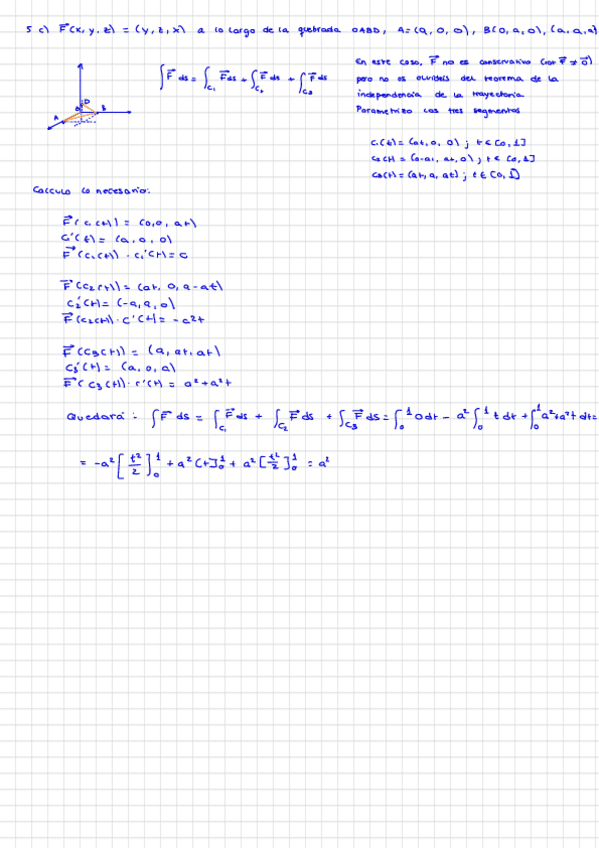 5 c) F⃗(x, y, z) = (y, z, x) a lo largo de la quebrada OABD, A=(a, 0, 0), B(0, a, 0), (a, a, a)
∫F⃗ ds = ∫c₁ F⃗ds + ∫c₂ F⃗ ds + ∫c₃ F⃗ ds
En este caso, F⃗ no es conservativo (rot F⃗ ≠ 0⃗)
pero no es del teorema de la
independencia de la trayectoria.
Parametrizo los tres segmentos
D
A B
c₁(t) = (at, 0, 0) ; t ∈ [0, 1]
c₂(t) = (a-at, at, 0) ; t ∈ [0, 1]
c₃(t) = (at, a, at) ; t ∈ [0, 1]
Calculo lo necesario:
F⃗(c₁(t)) = (0,0, at)
c₁'(t) = (a, 0, 0)
F⃗(c₁(t)) · c₁'(t) = 0
F⃗(c₂(t)) = (at, 0, a-at)
c₂'(t) = (-a, a, 0)
F⃗(c₂(t)) · c'(t) = -a²t
F⃗(c₃(t)) = (a, at, at)
c₃'(t) = (a, 0, a)
F⃗(c₃(t)) · c'(t) = a²+a²t
Quedará: ∫F⃗ ds = ∫c₁ F⃗ds + ∫c₂ F⃗ds + ∫c₃ F⃗ds = ∫₀¹ 0dt - a² ∫₀¹ t dt + ∫₀¹ a²+a²t dt =
= -a² [t²/2]₀¹ + a² [t]₀¹ + a² [t²/2]₀¹ = a²